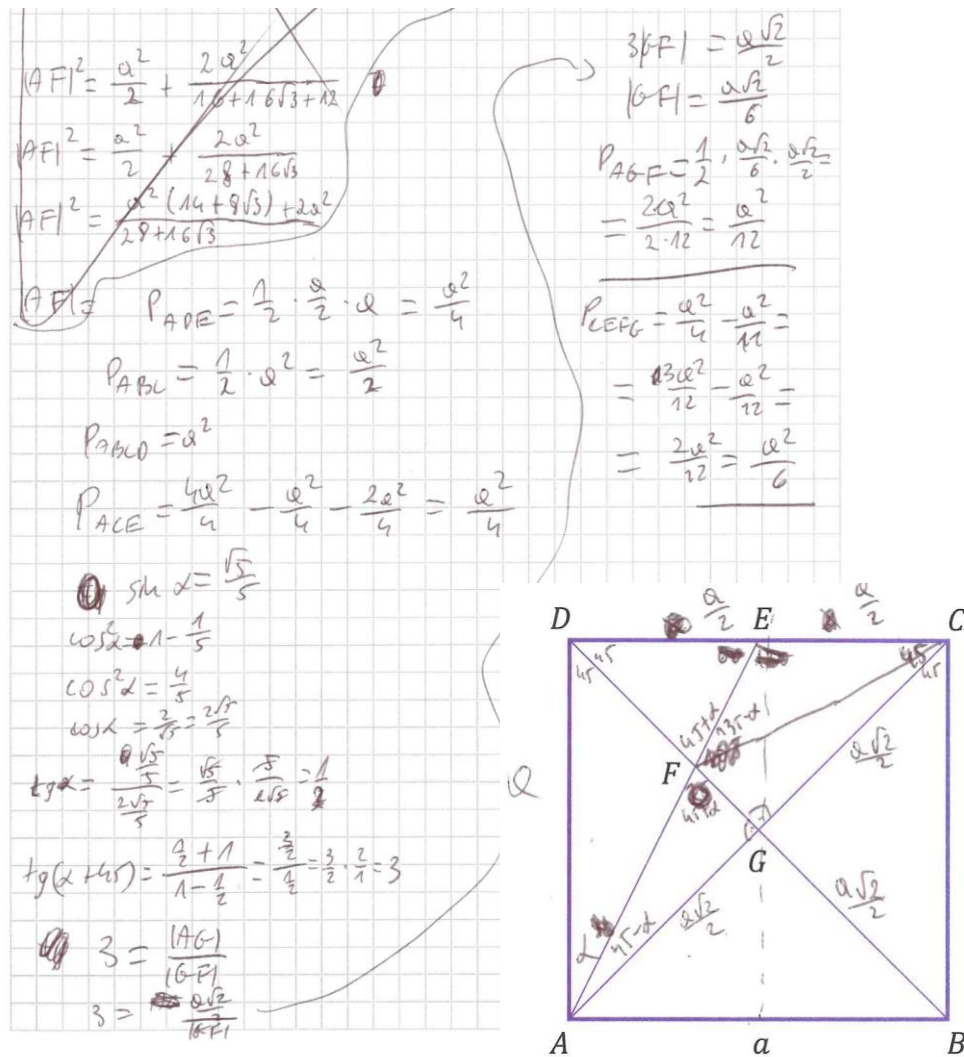 |AF|² = a²/2 + 2a²/(16+16√3+12)
|AF|² = a²/2 + 2a²/(28+16√3)
|AF|² = (a²(14+8√3)+2a²)/(28+16√3)
|AF| =
P_ADE = 1/2 · a/2 · a = a²/4
P_ABC = 1/2 · a² = a²/2
P_ABCD = a²
P_ACE = 4a²/4 − a²/4 − 2a²/4 = a²/4
sin α = √5/5
cos²α = 1 − 1/5
cos²α = 4/5
cosα = 2/√5 = 2√5/5
tgα = (√5/5)/(2√5/5) = √5/5 · 5/2√5 = 1/2
tg(α+45) = (1/2+1)/(1−1/2) = (3/2)/(1/2) = 3/2 · 2/1 = 3
3 = |AG|/|GF|
3 = (a√2/2)/|GF|
3|GF| = a√2/2
|GF| = a√2/6
P_AGF = 1/2 · a√2/6 · a√2/2 =
= 2a²/(2·12) = a²/12
P_CEFG = a²/4 − a²/12 =
= 3a²/12 − a²/12 =
= 2a²/12 = a²/6
a/2 a/2
D E C
45 45 45 45
45+α 135−α
F
a√2/2
a
45+α
G
a√2/2 a√2/2
α 45−α
A a B